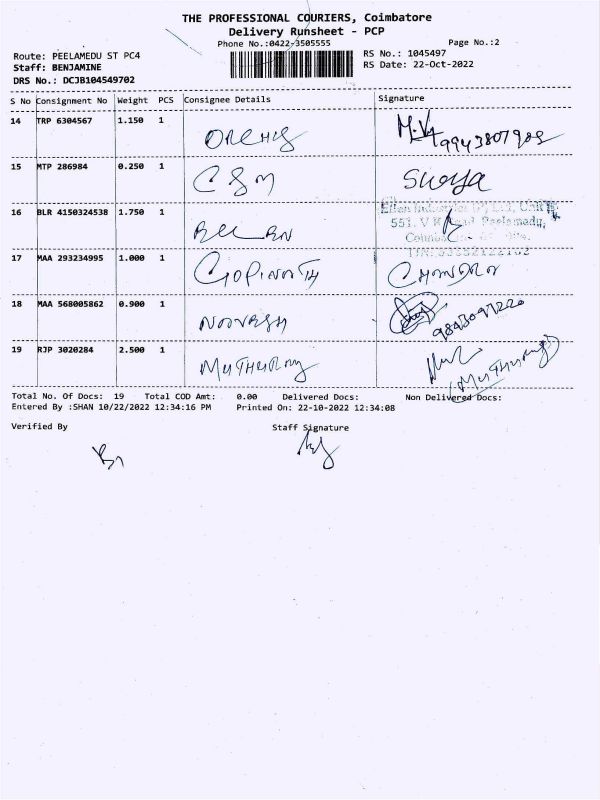 THE PROFESSIONAL COURIERS, Coimbatore
Delivery Runsheet - PCP
Phone No.:0422-3505555
Page No.:2
Route: PEELAMEDU ST PC4
RS No.: 1045497
Staff: BENJAMINE
RS Date: 22-Oct-2022
DRS No.: DCJB104549702
S No Consignment No Weight PCS Consignee Details Signature
14 TRP 6304567 1.150 1
15 MTP 286984 0.250 1 Surya
16 BLR 4150324538 1.750 1
551, V K Road Peelamedu,
17 MAA 293234995 1.000 1 GOPINATH
18 MAA 568005862 0.900 1
19 RJP 3020284 2.500 1 MUTHURAJ
Total No. Of Docs: 19 Total COD Amt: 0.00 Delivered Docs: Non Delivered Docs:
Entered By :SHAN 10/22/2022 12:34:16 PM Printed On: 22-10-2022 12:34:08
Verified By Staff Signature